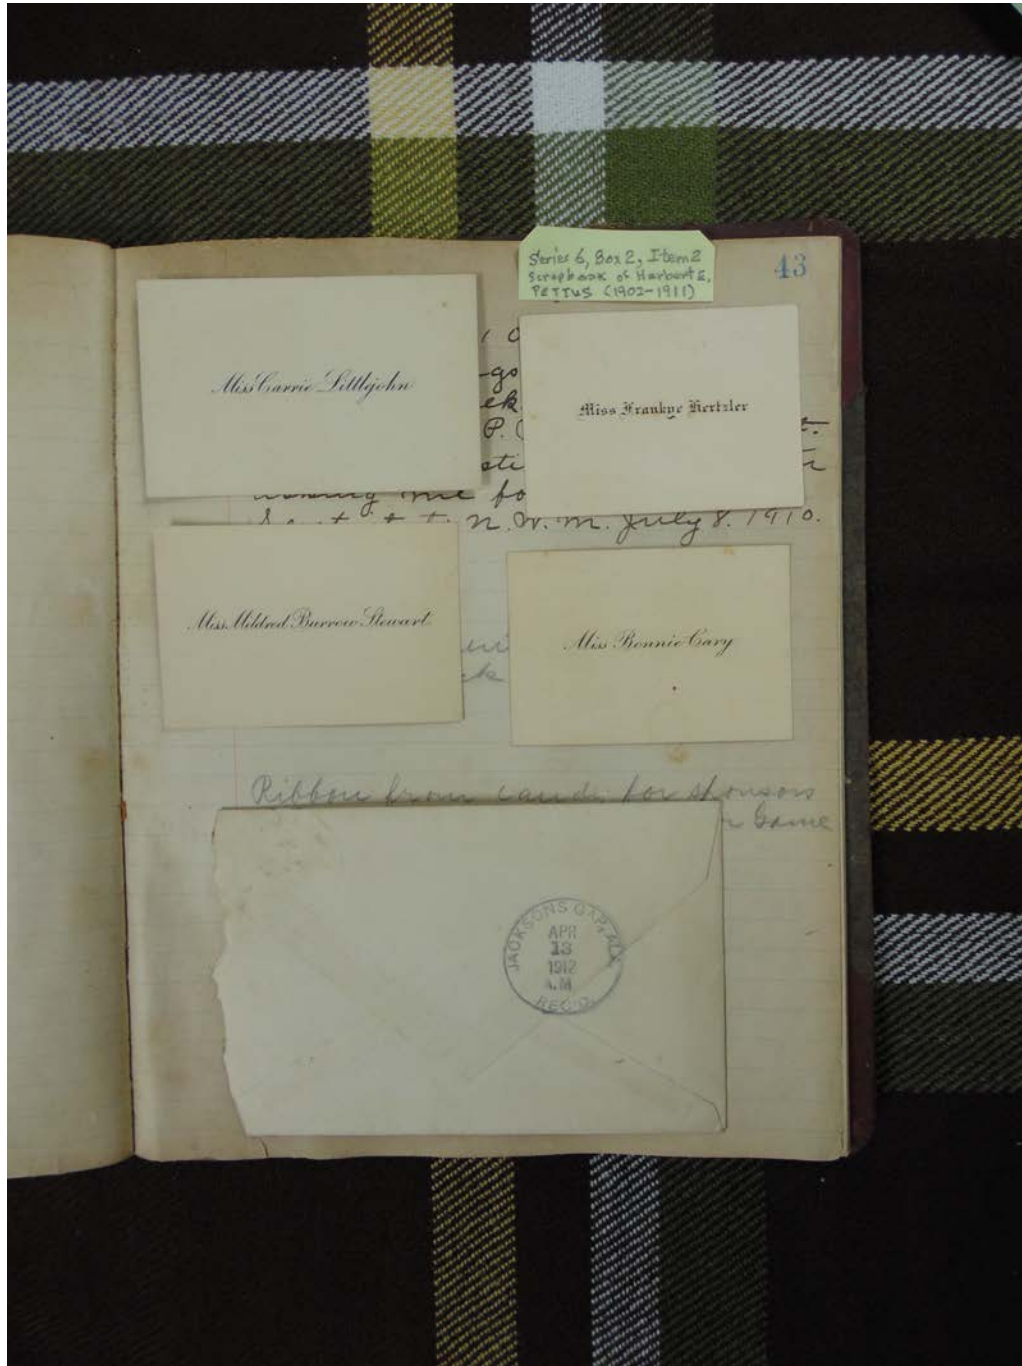 43
Series 6, Box 2, Item 2
Scrapbook of Harbert E.
PETTUS (1902-1911)
Miss Carrie Littlejohn
Miss Frankye Hertzler
P.
me fo
N. W. M. July 8. 1910.
Miss Mildred Burrow Stewart
Miss Bonnie Cary
Ribbon from for sponsors
Game
JACKSONS GAP, ALA.
APR
13
1912
A.M.
REC'D.